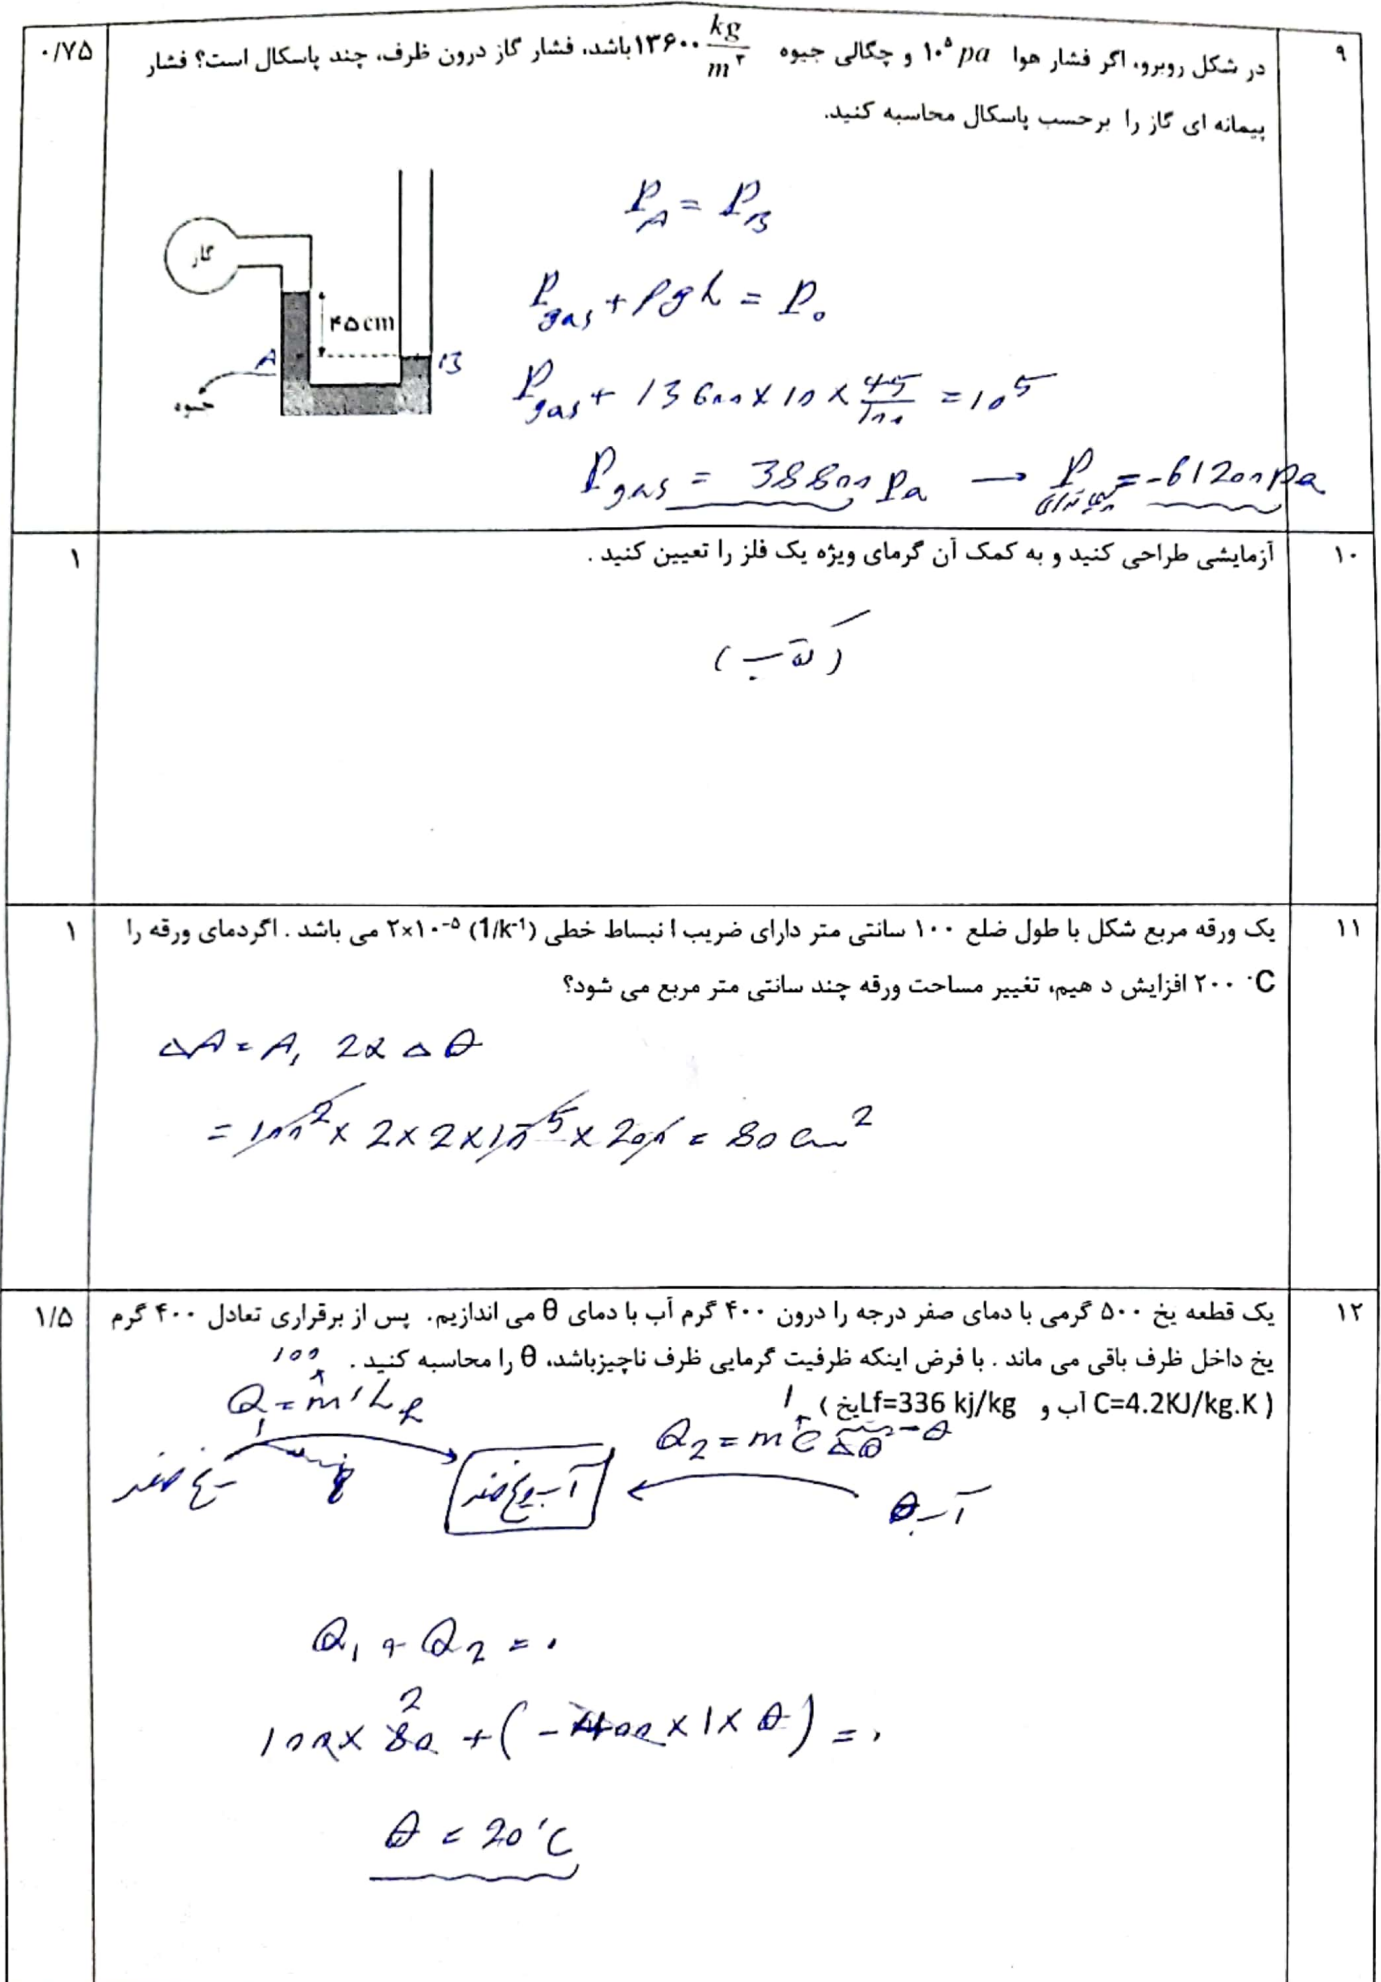 ۹
در شکل روبرو، اگر فشار هوا ۱۰^۵ pa و چگالی جیوه ۱۳۶۰۰ kg/m^۳ باشد، فشار گاز درون ظرف، چند پاسکال است؟ فشار
۰/۷۵
پیمانه ای گاز را برحسب پاسکال محاسبه کنید.
P_A = P_B
گاز
P_gas + ρgh = P_0
۴۵cm
A
B
جیوه
P_gas + 13600 × 10 × 45/100 = 10^5
P_gas = 38800 Pa → P پیمانه‌ای = -61200 Pa
۱۰
آزمایشی طراحی کنید و به کمک آن گرمای ویژه یک فلز را تعیین کنید .
۱
(کتاب)
۱۱
یک ورقه مربع شکل با طول ضلع ۱۰۰ سانتی متر دارای ضریب ا نبساط خطی (1/k^-1) ۲×۱۰^-۵ می باشد . اگردمای ورقه را
۱
۲۰۰ °C افزایش د هیم، تغییر مساحت ورقه چند سانتی متر مربع می شود؟
ΔA = A_1 2α Δθ
= 100^2 × 2 × 2 × 10^-5 × 200 = 80 cm^2
۱۲
یک قطعه یخ ۵۰۰ گرمی با دمای صفر درجه را درون ۴۰۰ گرم آب با دمای θ می اندازیم. پس از برقراری تعادل ۴۰۰ گرم
۱/۵
یخ داخل ظرف باقی می ماند . با فرض اینکه ظرفیت گرمایی ظرف ناچیزباشد، θ را محاسبه کنید .
( C=4.2KJ/kg.K آب و Lf=336 kj/kg یخ )
100
Q_1 = m' L_f
1
Q_2 = m c Δθ = -θ
یخ صفر
آب و یخ صفر
آب θ
Q_1 + Q_2 = 0
2
100 × 80 + (-400 × 1 × θ) = 0
θ = 20°C